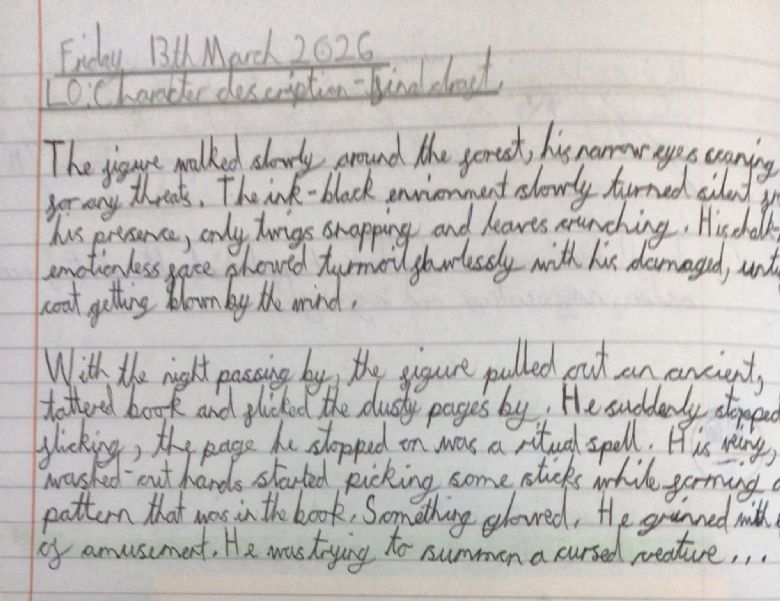 Friday 13th March 2026
LO: Character description - Final draft.
The figure walked slowly around the forest, his narrow eyes scaning
for any threats. The ink-black envionment slowly turned silent
his presence, only twigs snapping and leaves crunching. His chalk-
emotionless face showed turmoil flawlessly with his damaged,
coat getting blown by the wind.
With the night passing by, the figure pulled out an ancient,
tattered book and flicked the dusty pages by. He suddenly stopped
flicking, the page he stopped on was a ritual spell. His veiny,
washed-out hands started picking some sticks while forming a
pattern that was in the book. Something glowed. He grinned with
of amusement. He was trying to summon a cursed creature...